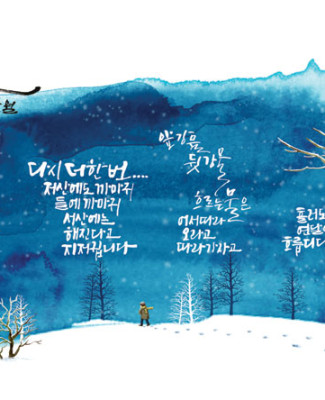 월
다시 더한번....
저산에도 까마귀
들에 까마귀
서산에는
해진다고
지저귑니다
앞강물
뒷강물
흐르는 물은
어서따라
오라고
따라가자고
흘러도
흐릅디다